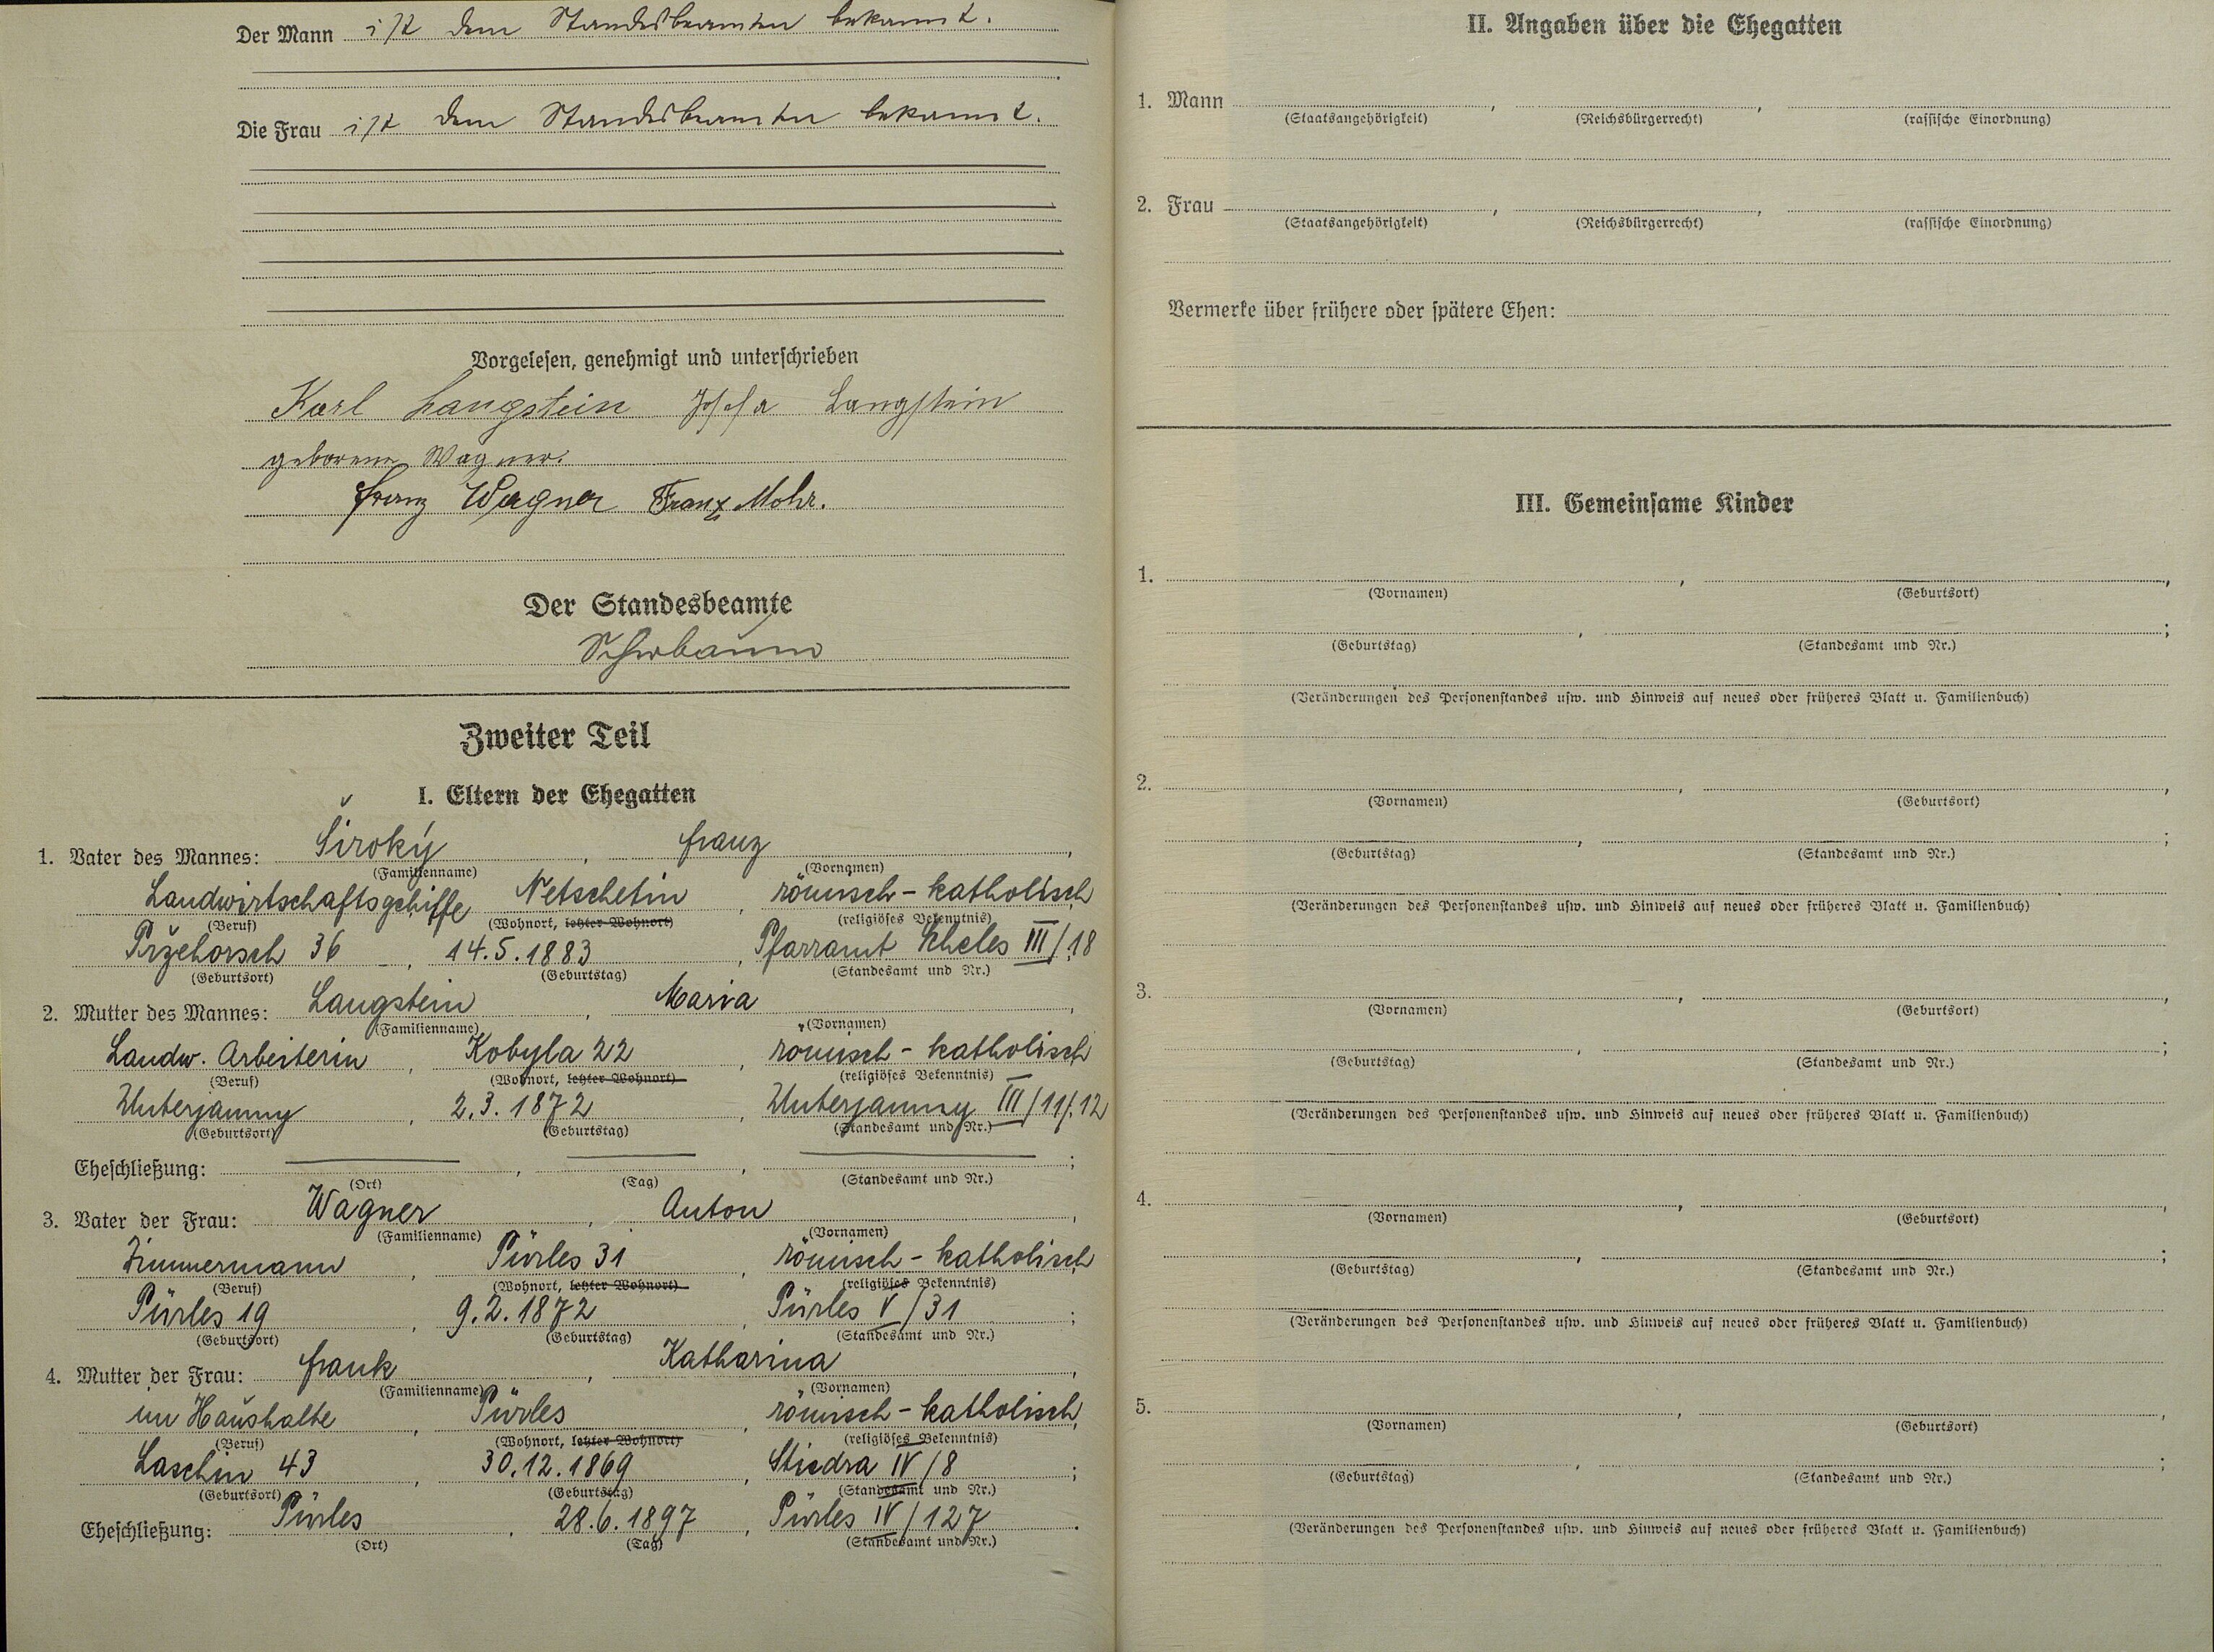 Der Mann ist dem Standesbeamten bekannt.
Die Frau ist dem Standesbeamten bekannt.
Vorgelesen, genehmigt und unterschrieben
Karl Langstein Josefa Langstein
geborene Wagner.
Franz Wagner Franz Mohr.
Der Standesbeamte
Zweiter Teil
I. Eltern der Ehegatten
1. Vater des Mannes: Široký, Franz,
(Familienname) (Vornamen)
Landwirtschaftsgehilfe Netschetin, römisch-katholisch
(Beruf) (Wohnort, letzter Wohnort) (religiöses Bekenntnis)
Pržehorsch 36, 14.5.1883, Pfarramt Scheles III/18
(Geburtsort) (Geburtstag) (Standesamt und Nr.)
2. Mutter des Mannes: Langstein, Maria,
(Familienname) (Vornamen)
Landw. Arbeiterin, Kobyla 22, römisch-katholisch
(Beruf) (Wohnort, letzter Wohnort) (religiöses Bekenntnis)
Unterjamny, 2.3.1872, Unterjamny III/11/.12
(Geburtsort) (Geburtstag) (Standesamt und Nr.)
Eheschließung: , , ;
(Ort) (Tag) (Standesamt und Nr.)
3. Vater der Frau: Wagner, Anton,
(Familienname) (Vornamen)
Zimmermann, Pürles 31, römisch-katholisch
(Beruf) (Wohnort, letzter Wohnort) (religiöses Bekenntnis)
Pürles 19, 9.2.1872, Pürles V/31;
(Geburtsort) (Geburtstag) (Standesamt und Nr.)
4. Mutter der Frau: Frank, Katharina,
(Familienname) (Vornamen)
im Haushalte, Pürles, römisch-katholisch,
(Beruf) (Wohnort, letzter Wohnort) (religiöses Bekenntnis)
Laschin 43, 30.12.1869, Stiedra IV/8;
(Geburtsort) (Geburtstag) (Standesamt und Nr.)
Eheschließung: Pürles, 28.6.1897, Pürles IV/127.
(Ort) (Tag) (Standesamt und Nr.)
II. Angaben über die Ehegatten
1. Mann , ,
(Staatsangehörigkeit) (Reichsbürgerrecht) (rassische Einordnung)
2. Frau , ,
(Staatsangehörigkeit) (Reichsbürgerrecht) (rassische Einordnung)
Vermerke über frühere oder spätere Ehen:
III. Gemeinsame Kinder
1. , ,
(Vornamen) (Geburtsort)
, ;
(Geburtstag) (Standesamt und Nr.)
(Veränderungen des Personenstandes usw. und Hinweis auf neues oder früheres Blatt u. Familienbuch)
2. , ,
(Vornamen) (Geburtsort)
, ;
(Geburtstag) (Standesamt und Nr.)
(Veränderungen des Personenstandes usw. und Hinweis auf neues oder früheres Blatt u. Familienbuch)
3. , ,
(Vornamen) (Geburtsort)
, ;
(Geburtstag) (Standesamt und Nr.)
(Veränderungen des Personenstandes usw. und Hinweis auf neues oder früheres Blatt u. Familienbuch)
4. , ,
(Vornamen) (Geburtsort)
, ;
(Geburtstag) (Standesamt und Nr.)
(Veränderungen des Personenstandes usw. und Hinweis auf neues oder früheres Blatt u. Familienbuch)
5. , ,
(Vornamen) (Geburtsort)
, ;
(Geburtstag) (Standesamt und Nr.)
(Veränderungen des Personenstandes usw. und Hinweis auf neues oder früheres Blatt u. Familienbuch)